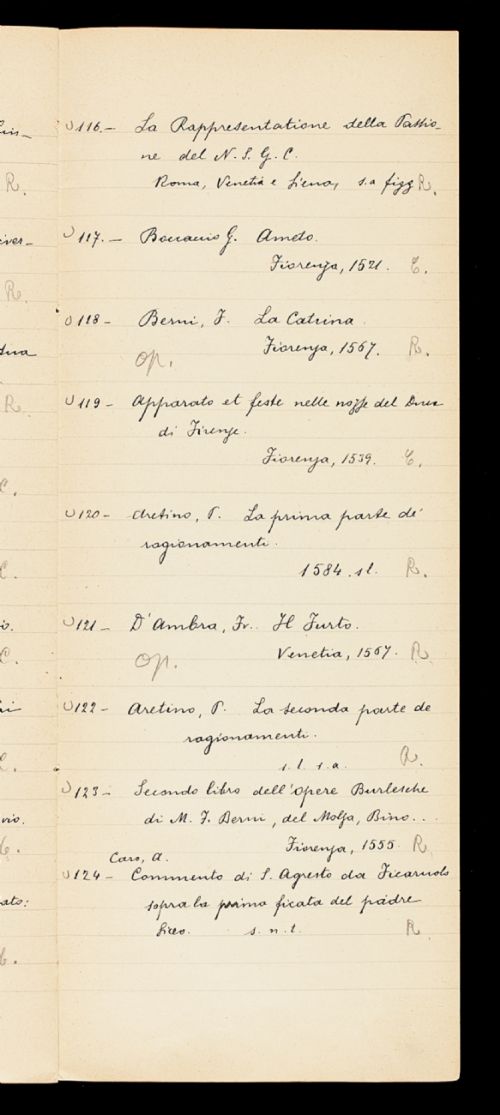 116.- La Rappresentatione della Passio-
ne del N. S. G. C.
Roma, Venetia e Siena, s.a figg R.
117.- Boccaccio G. Ameto.
Fiorenza, 1521. C.
118- Berni, F. La Catrina.
Op. Fiorenza, 1567. R.
119- Apparato et feste nelle nozze del Duca
di Firenze.
Fiorenza, 1539. C.
120- Aretino, P. La prima parte de'
ragionamenti.
1584. s.l. R.
121- D'Ambra, Fr. Il Furto.
Op. Venetia, 1567. R
122- Aretino, P. La seconda parte de
ragionamenti.
s. l. s. a. R.
123- Secondo libro dell'opere Burlesche
di M. F. Berni, del Molza, Bino...
Fiorenza, 1555. R
Caro, A.
124- Commento di S. Agresto da Ficaruolo
sopra la prima ficata del padre
Siceo. s. n. t. R
R.
iver-
R.
R.
C.
C.
C.
vio.
ato: